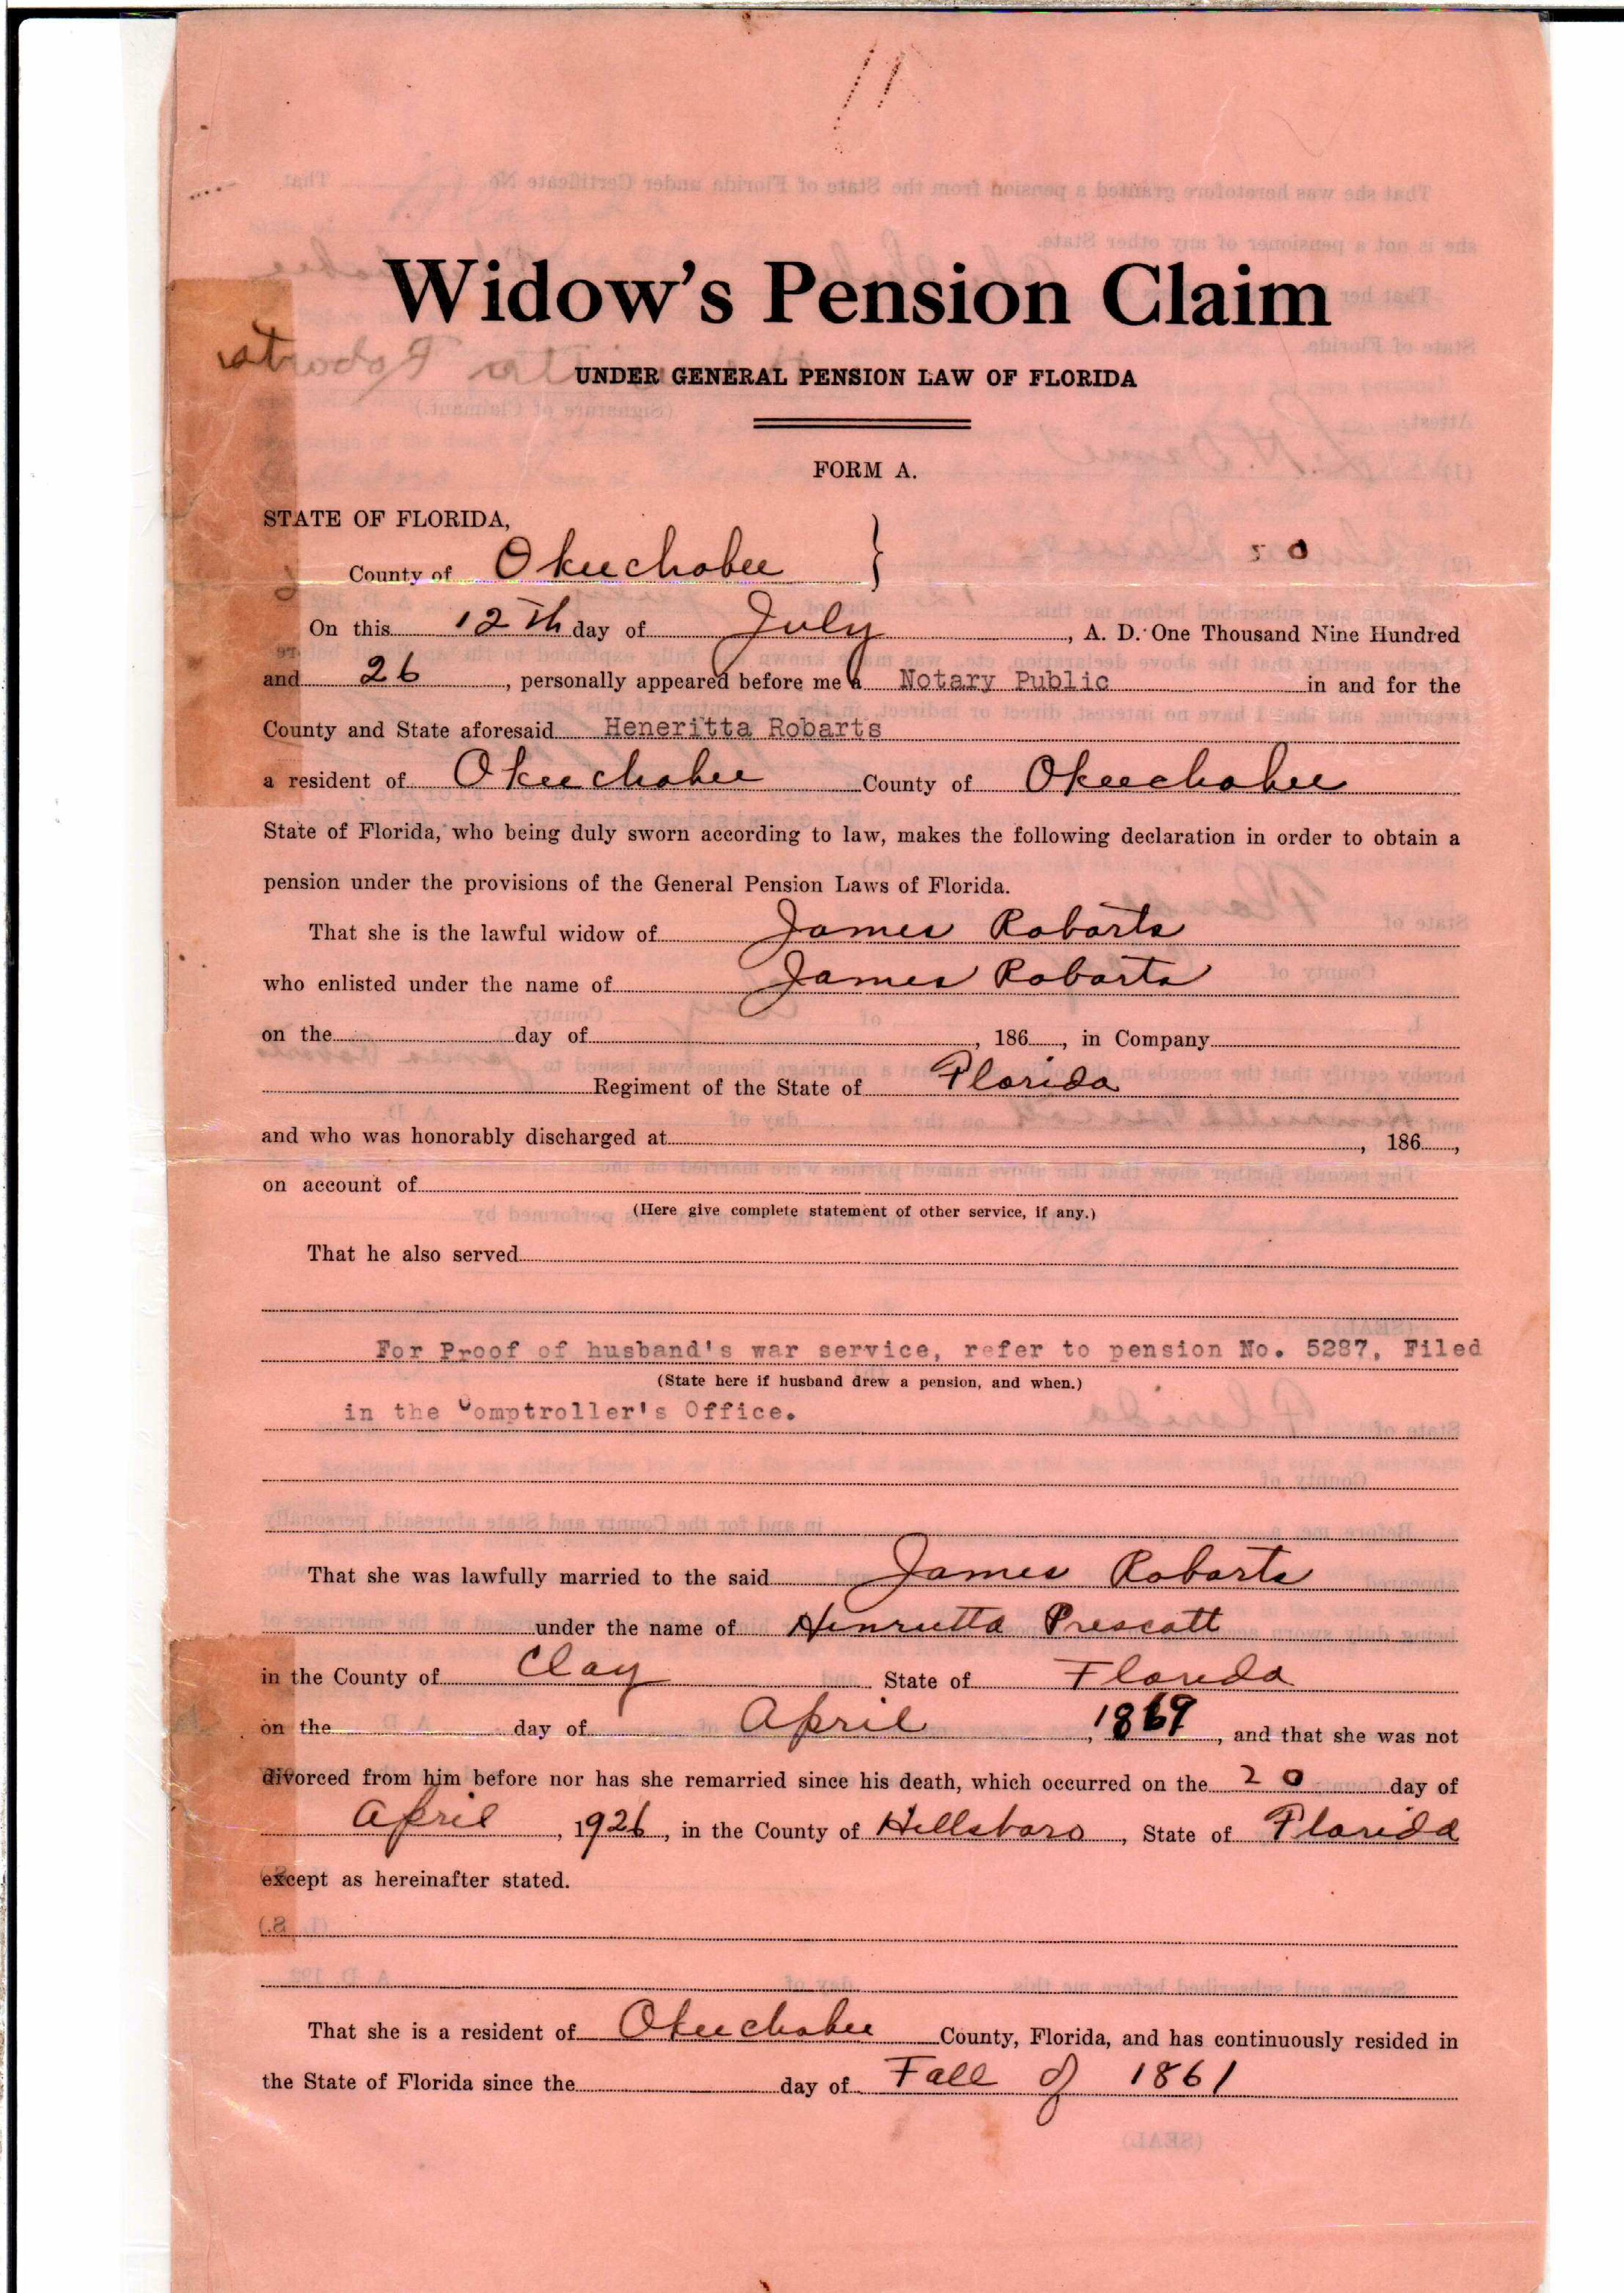 Widow's Pension Claim
UNDER GENERAL PENSION LAW OF FLORIDA
FORM A.
STATE OF FLORIDA,
County of Okeechobee }
On this 12th day of July, A. D. One Thousand Nine Hundred
and 26, personally appeared before me a Notary Public in and for the
County and State aforesaid Heneritta Robarts
a resident of Okeechobee County of Okeechobee
State of Florida, who being duly sworn according to law, makes the following declaration in order to obtain a
pension under the provisions of the General Pension Laws of Florida.
That she is the lawful widow of James Robarts
who enlisted under the name of James Robarts
on the day of , 186 , in Company
Regiment of the State of Florida
and who was honorably discharged at , 186 ,
on account of
(Here give complete statement of other service, if any.)
That he also served
For Proof of husband's war service, refer to pension No. 5287, Filed
(State here if husband drew a pension, and when.)
in the Comptroller's Office.
That she was lawfully married to the said James Robarts
under the name of Henrietta Prescott
in the County of Clay State of Florida
on the day of April, 1869, and that she was not
divorced from him before nor has she remarried since his death, which occurred on the 20 day of
April, 1926, in the County of Hillsboro, State of Florida
except as hereinafter stated.
That she is a resident of Okeechobee County, Florida, and has continuously resided in
the State of Florida since the day of Fall of 1861